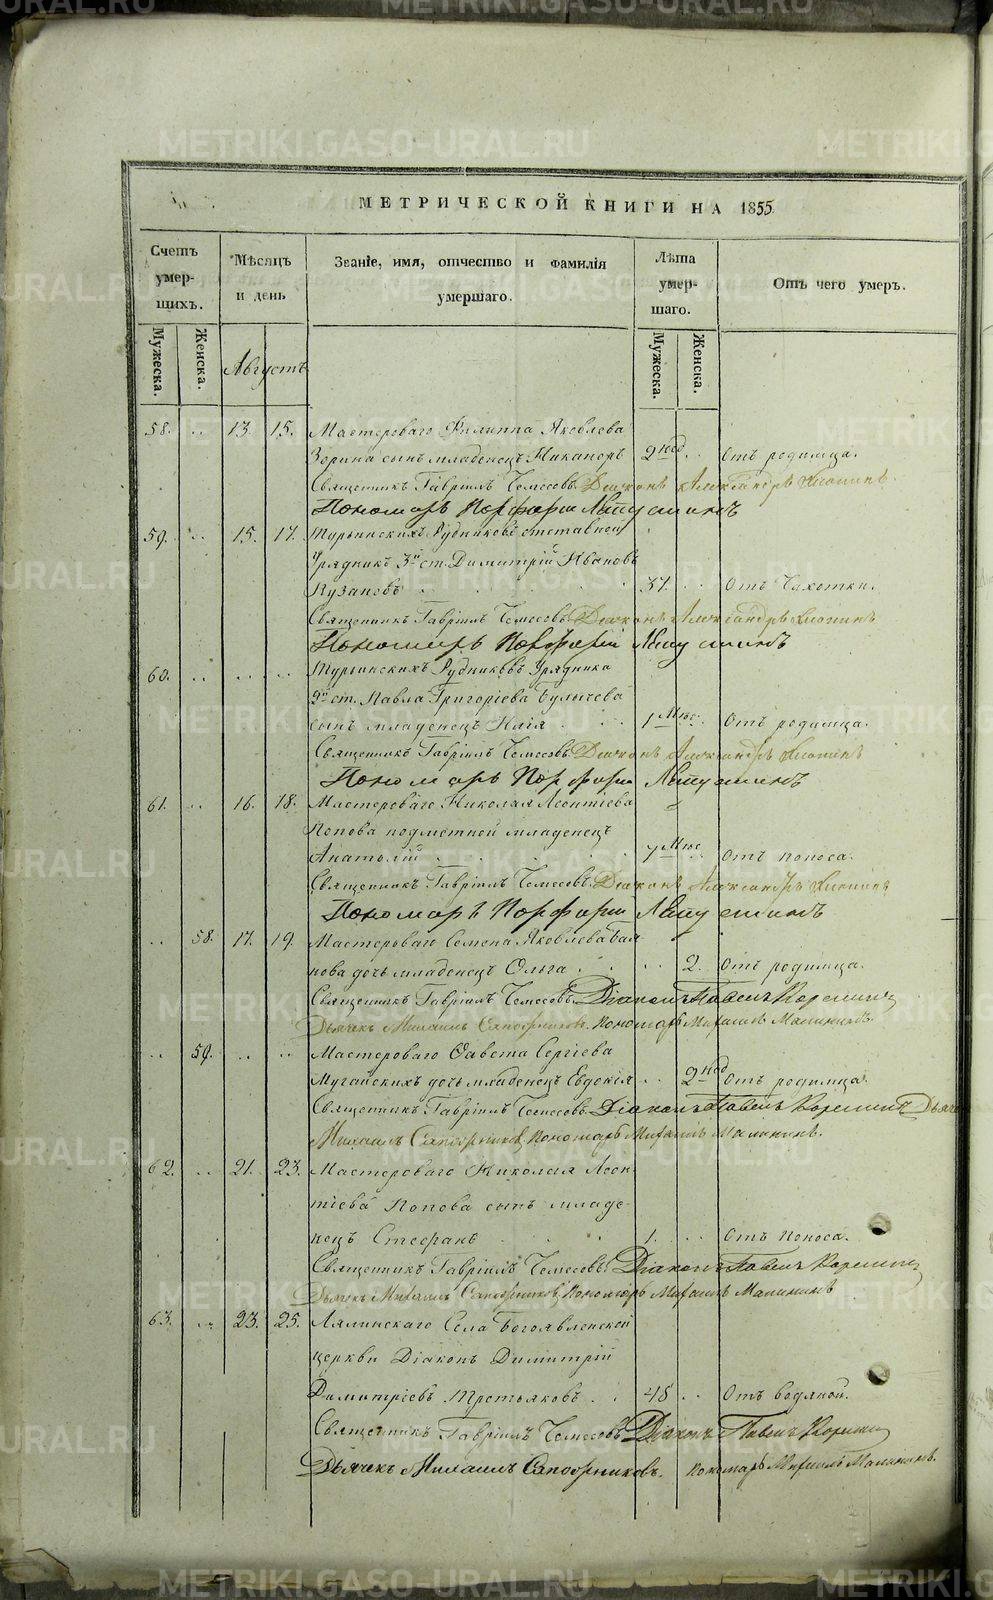 МЕТРИЧЕСКОЙ КНИГИ НА 1855
Счетъ умершихъ.
Мѣсяцъ и день
Званіе, имя, отчество и фамилія умершаго.
Лѣта умершаго.
Отъ чего умеръ.
Мужеска.
Женска.
Августъ
Мужеска.
Женска.
58. .. 13. 15. Мастероваго Филиппа Яковлева
Зорина сынъ младенецъ Никаноръ 2 нед. .. Отъ родимца.
Священникъ Гавріилъ Діаконъ Александръ
Пономарь Порфирій
59. .. 15. 17. Турьинскихъ Рудниковъ отставной
Урядникъ 3й ст. Димитрій Ивановъ
Пузановъ 37. .. Отъ Чахотки.
Священникъ Гавріилъ Діаконъ Александръ
Пономарь Порфирій
60. .. .. .. Турьинскихъ Рудниковъ Урядника
2й ст. Павла Григоріева Булычева
сынъ младенецъ Илія 1 Мѣс. Отъ родимца.
Священникъ Гавріилъ Діаконъ Александръ
Пономарь Порфирій
61. .. 16. 18. Мастероваго Николая Леонтіева
Попова подметной младенецъ
Анатолій 7 Мѣс .. Отъ поноса.
Священникъ Гавріилъ Діаконъ Александръ
Пономарь Порфирій
.. 58. 17. 19. Мастероваго Семена Яковлева
нова дочь младенецъ Ольга .. 2. Отъ родимца.
Священникъ Гавріилъ Діаконъ Павелъ
Дьячекъ Михаилъ Сапожниковъ Пономарь Михаилъ Малининъ.
.. 59. .. .. Мастероваго Савета Сергіева
Мугайскихъ дочь младенецъ Евдокія .. 2 нед Отъ родимца.
Священникъ Гавріилъ Діаконъ Павелъ Дьячекъ
Михаилъ Сапожниковъ Пономарь Михаилъ Малининъ.
62. .. 21. 23. Мастероваго Николая Леон
тіева Попова сынъ младе-
нецъ Стефанъ 1. .. Отъ поноса.
Священникъ Гавріилъ Діаконъ Павелъ
Дьячекъ Михаилъ Сапожниковъ Пономарь Михаилъ Малининъ
63. .. 23. 25. Лялинскаго Села Богоявленской
церкви Діаконъ Димитрій
Димитріевъ Третьяковъ 48 .. Отъ водяной.
Священникъ Гавріилъ Діаконъ Павелъ
Дьячекъ Михаилъ Сапожниковъ. Пономарь Михаилъ Малининъ.
METRIKI.GASO-URAL.RU